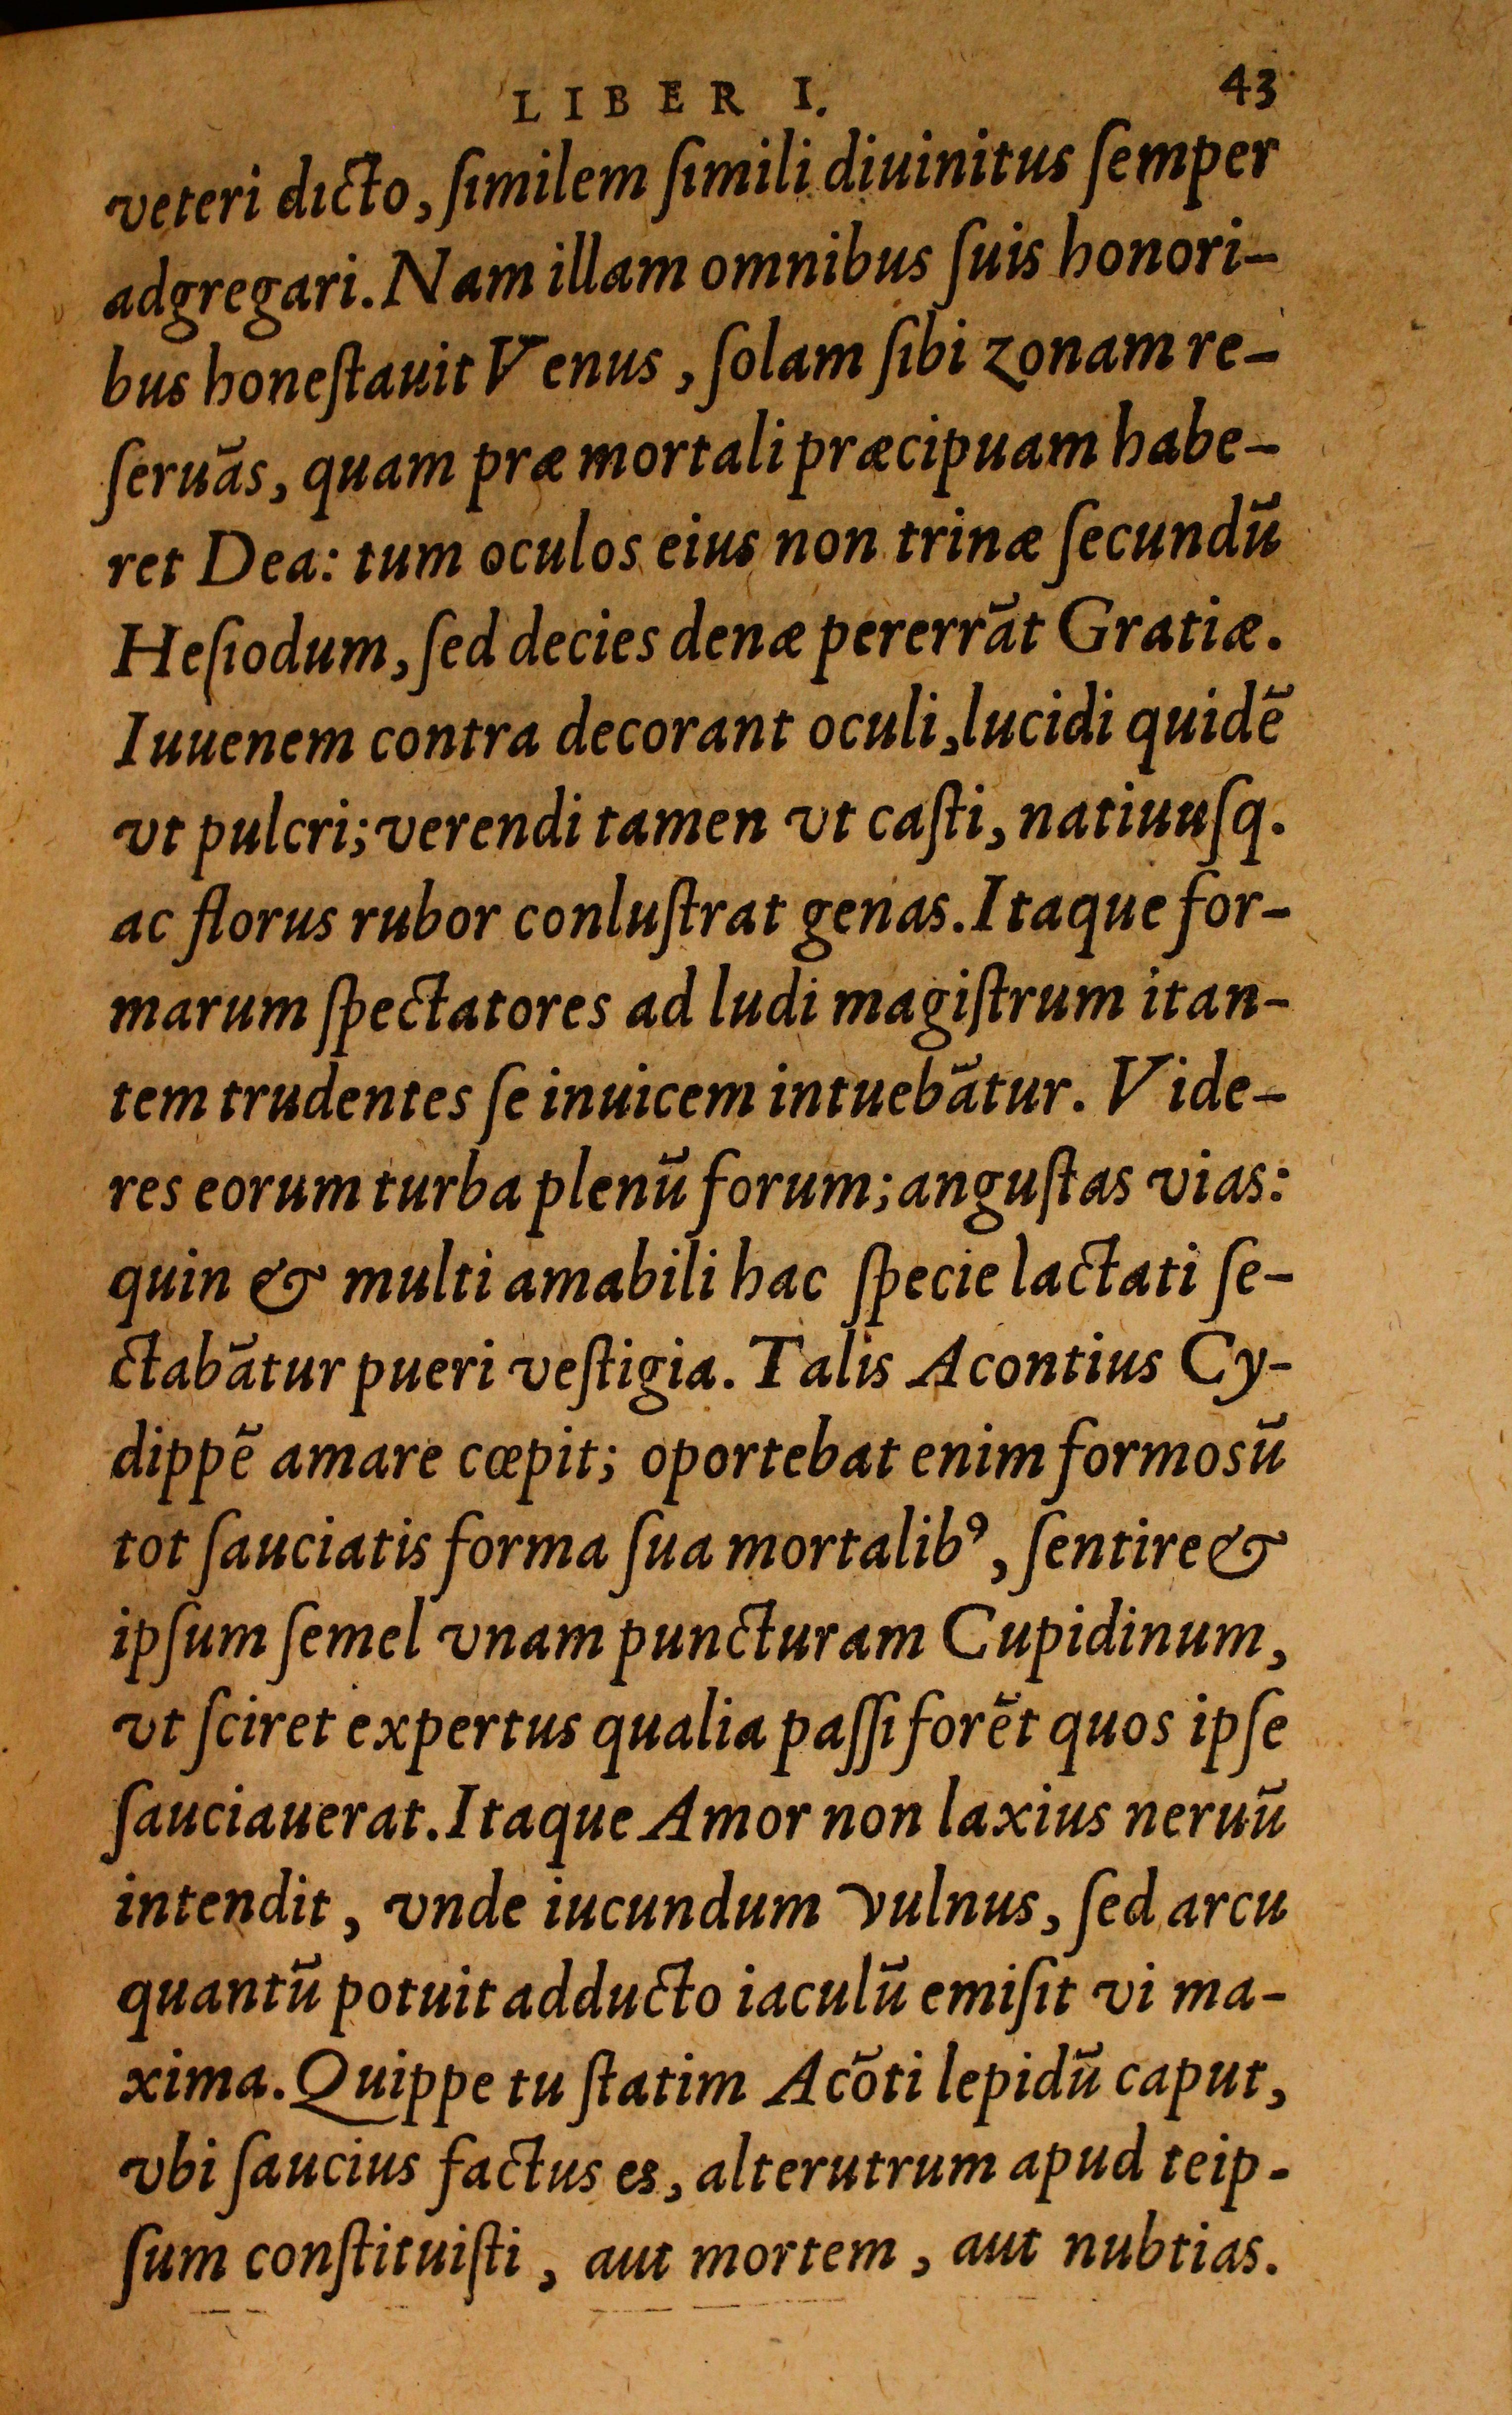 LIBER I. 43
veteri dicto, ſimilem ſimili diuinitus ſemper
adgregari. Nam illam omnibus ſuis honori-
bus honeſtauit Venus, ſolam ſibi zonam re-
ſeruãs, quam præ mortali præcipuam habe-
ret Dea: tum oculos eius non trinæ ſecundũ
Heſiodum, ſed decies denæ pererrãt Gratiæ.
Iuuenem contra decorant oculi, lucidi quidẽ
vt pulcri; verendi tamen vt caſti, natiuuſq.
ac florus rubor conluſtrat genas. Itaque for-
marum ſpectatores ad ludi magiſtrum itan-
tem trudentes ſe inuicem intuebãtur. Vide-
res eorum turba plenũ forum; anguſtas vias:
quin & multi amabili hac ſpecie lactati ſe-
ctabãtur pueri veſtigia. Talis Acontius Cy-
dippẽ amare cœpit; oportebat enim formosũ
tot ſauciatis forma ſua mortalibꝰ, ſentire &
ipſum ſemel vnam puncturam Cupidinum,
vt ſciret expertus qualia paſſi forẽt quos ipſe
ſauciauerat. Itaque Amor non laxius neruũ
intendit, vnde iucundum vulnus, ſed arcu
quantũ potuit adducto iaculũ emiſit vi ma-
xima. Quippe tu ſtatim Acõti lepidũ caput,
vbi ſaucius factus es, alterutrum apud teip-
ſum conſtituiſti, aut mortem, aut nubtias.